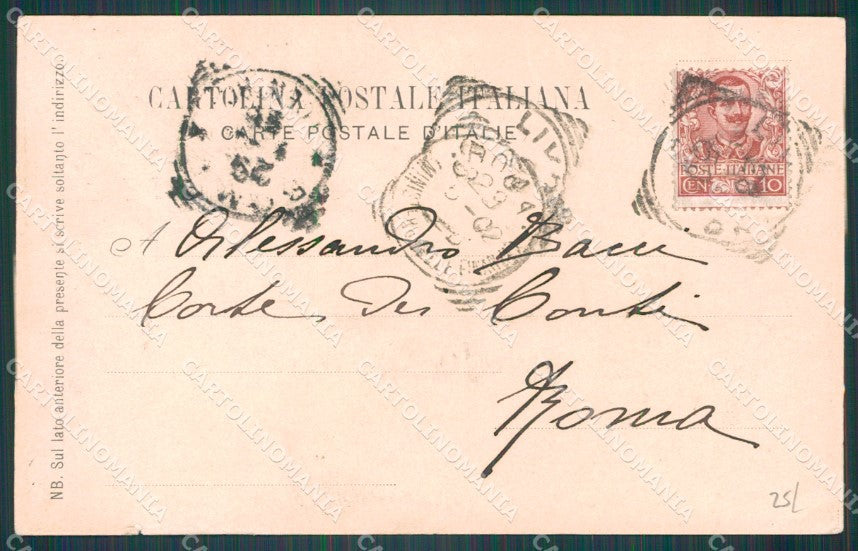 CARTOLINA POSTALE ITALIANA
CARTE POSTALE D'ITALIE
POSTE ITALIANE
CENT. 10
A Alessandro Bacci
Corte dei Conti
Roma
NB. Sul lato anteriore della presente si scrive soltanto l'indirizzo.
25/
CARTOLINOMANIA